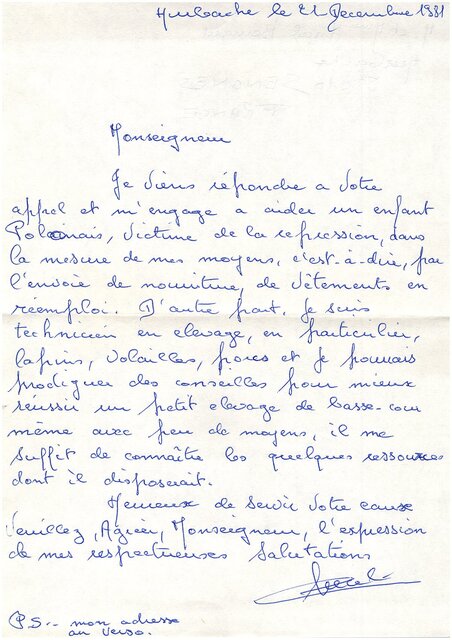 Aurbache le 21 Decembre 1981
Monseigneur
Je viens répondre a votre
appel et m'engage a aider un enfant
Polonais, victime de la repression, dans
la mesure de mes moyens, c'est-à-dire, par
l'envoie de nourriture, de vêtements en
réemploi. D'autre part, Je suis
technicien en elevage, en particulier,
lapins, volailles, porcs et Je pourrais
prodiguer des conseilles pour mieux
réussir un petit elevage de basse-cour
même avec peu de moyens, il me
suffit de connaître les quelques ressources
dont il disposerait.
Heureux de servir votre cause
Veuillez, Agréer, Monseigneur, l'expression
de mes respectueuses salutations
P.S.- mon adresse
au verso.